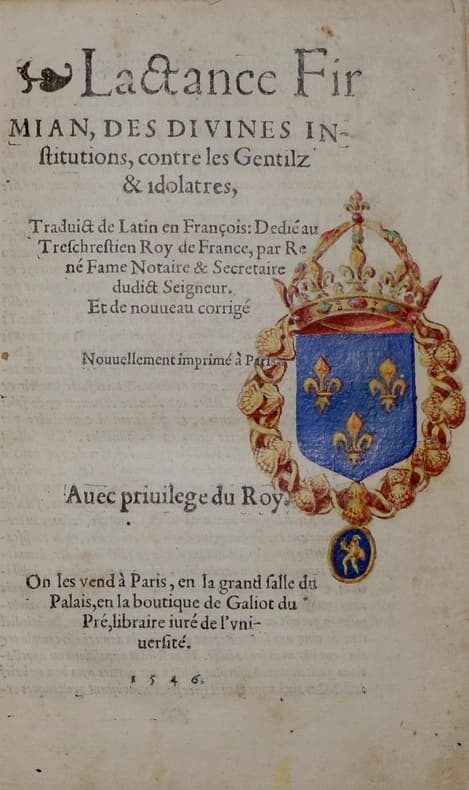 Lactance Fir
MIAN, DES DIVINES IN-
stitutions, contre les Gentilz
& idolatres,
Traduict de Latin en François: Dedié au
Treschrestien Roy de France, par Re
né Fame Notaire & Secretaire
dudict Seigneur.
Et de nouueau corrigé
Nouuellement imprimé à Paris
Auec priuilege du Roy.
On les vend à Paris, en la grand salle du
Palais, en la boutique de Galiot du
Pré, libraire iuré de l'vni-
uersité.
1546.